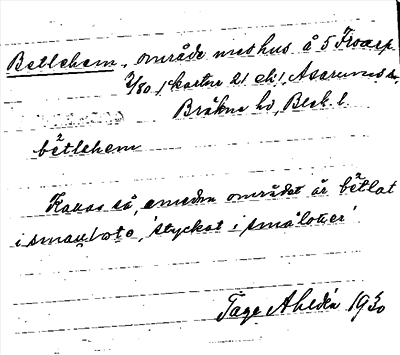 Betlehem, område med hus å 5 Froarp
2/80 (kartan 21 ek), Asarums sn,
Bräkne hd, Blek. l.
bětlehem
Kallas så, emedan området är bětlat
i små lote, 'styckat i små lotter'
Tage Ahldén 1930